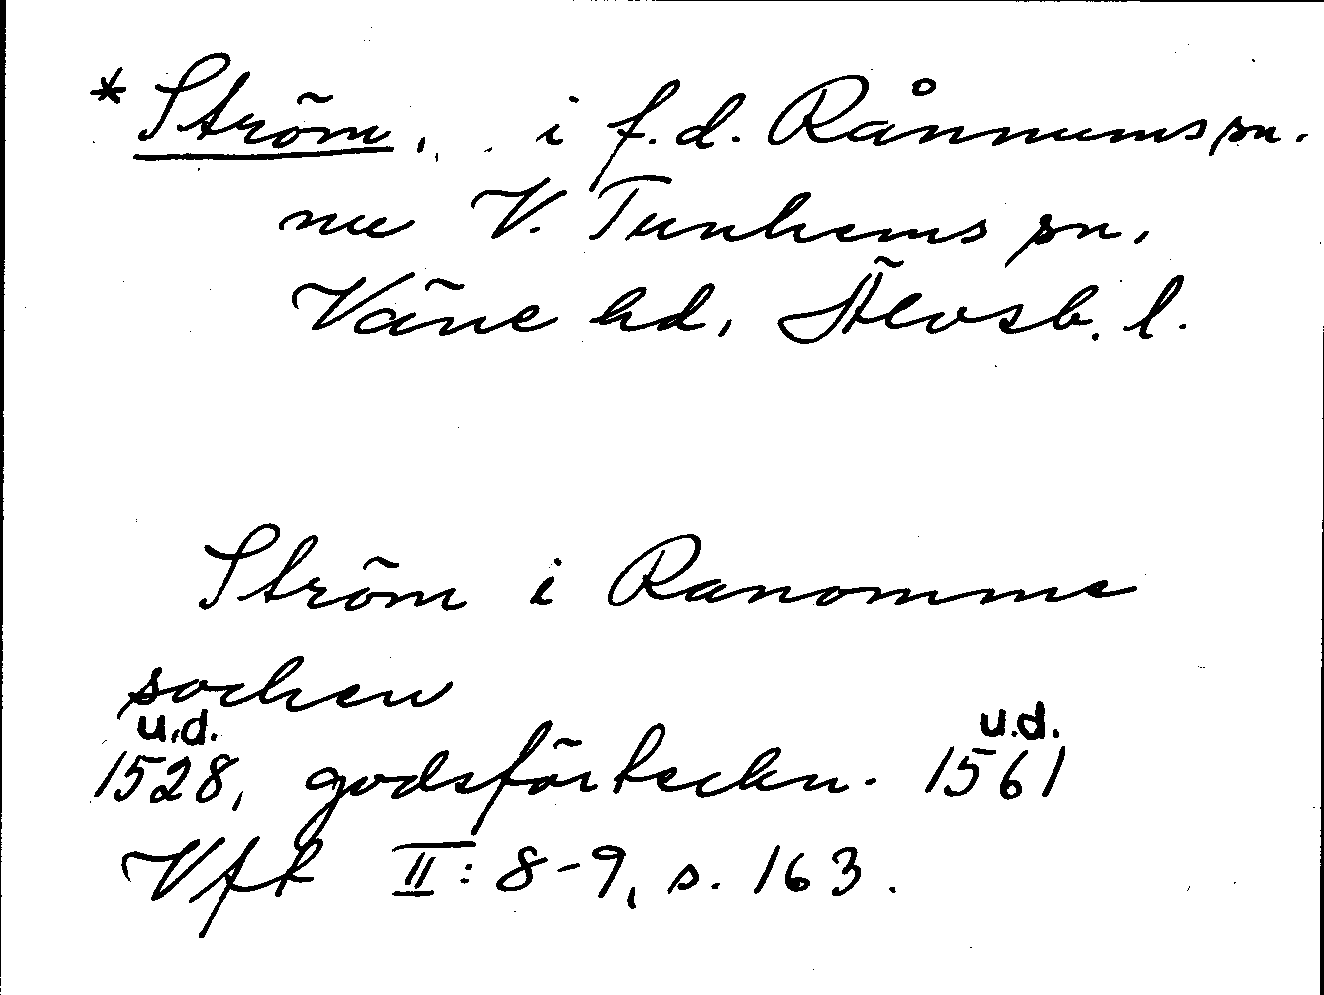 * Ström, i f.d. Rånnums sn.
nu V. Tunhems sn,
Väne hd, Älvsb. l.
Ström i Ranomme
sochen
u.d. u.d.
1528, godsförteckn. 1561
Vft II: 8-9, s. 163.